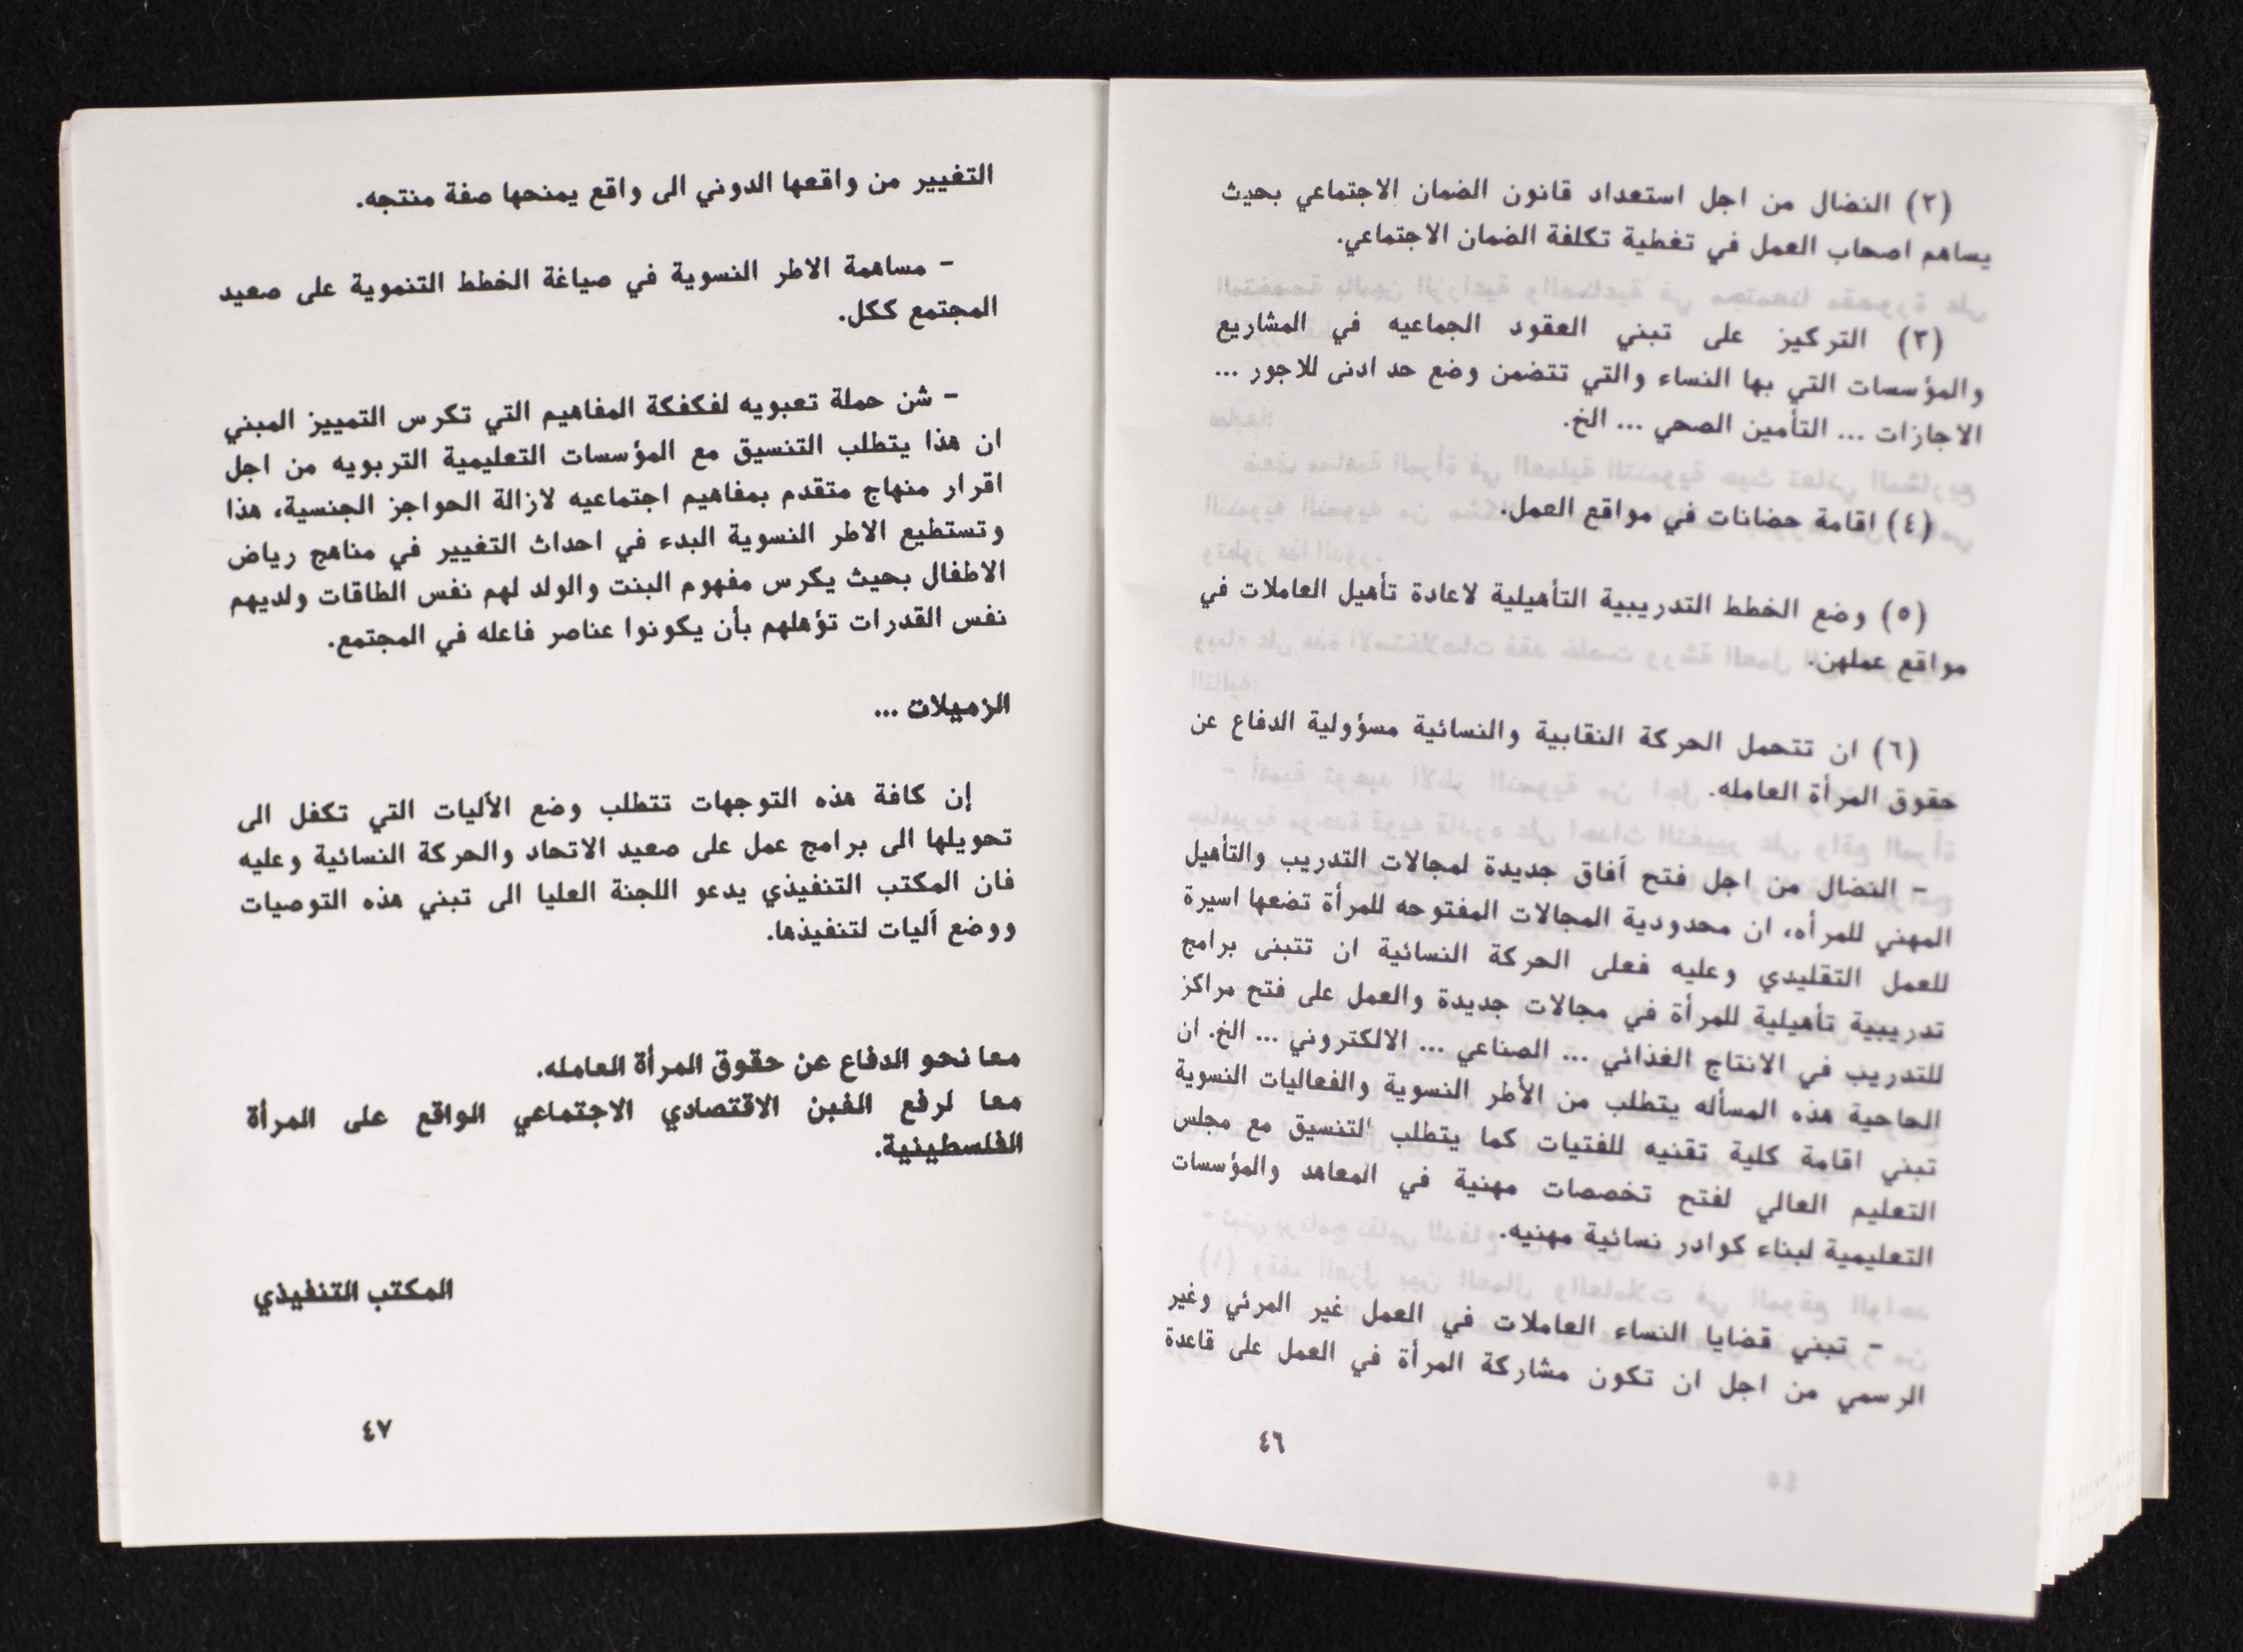 (٢) النضال من اجل استعداد قانون الضمان الاجتماعي بحيث
يساهم اصحاب العمل في تغطية تكلفة الضمان الاجتماعي.
(٣) التركيز على تبني العقود الجماعيه في المشاريع
والمؤسسات التي بها النساء والتي تتضمن وضع حد ادنى للاجور ...
الاجازات ... التأمين الصحي ... الخ.
(٤) اقامة حضانات في مواقع العمل.
(٥) وضع الخطط التدريبية التأهيلية لاعادة تأهيل العاملات في
مواقع عملهن.
(٦) ان تتحمل الحركة النقابية والنسائية مسؤولية الدفاع عن
حقوق المرأة العامله.
- النضال من اجل فتح أفاق جديدة لمجالات التدريب والتأهيل
المهني للمرأه، ان محدودية المجالات المفتوحه للمرأة تضعها اسيرة
للعمل التقليدي وعليه فعلى الحركة النسائية ان تتبنى برامج
تدريبية تأهيلية للمرأة في مجالات جديدة والعمل على فتح مراكز
للتدريب في الانتاج الغذائي ... الصناعي ... الالكتروني ... الخ. ان
الحاحية هذه المسأله يتطلب من الأطر النسوية والفعاليات النسوية
تبني اقامة كلية تقنيه للفتيات كما يتطلب التنسيق مع مجلس
التعليم العالي لفتح تخصصات مهنية في المعاهد والمؤسسات
التعليمية لبناء كوادر نسائية مهنيه.
- تبني قضايا النساء العاملات في العمل غير المرئي وغير
الرسمي من اجل ان تكون مشاركة المرأة في العمل على قاعدة
٤٦
التغيير من واقعها الدوني الى واقع يمنحها صفة منتجه.
- مساهمة الاطر النسوية في صياغة الخطط التنموية على صعيد
المجتمع ككل.
- شن حملة تعبويه لفكفكة المفاهيم التي تكرس التمييز المبني
ان هذا يتطلب التنسيق مع المؤسسات التعليمية التربويه من اجل
اقرار منهاج متقدم بمفاهيم اجتماعيه لازالة الحواجز الجنسية، هذا
وتستطيع الاطر النسوية البدء في احداث التغيير في مناهج رياض
الاطفال بحيث يكرس مفهوم البنت والولد لهم نفس الطاقات ولديهم
نفس القدرات تؤهلهم بأن يكونوا عناصر فاعله في المجتمع.
الزميلات ...
إن كافة هذه التوجهات تتطلب وضع الأليات التي تكفل الى
تحويلها الى برامج عمل على صعيد الاتحاد والحركة النسائية وعليه
فان المكتب التنفيذي يدعو اللجنة العليا الى تبني هذه التوصيات
ووضع أليات لتنفيذها.
معا نحو الدفاع عن حقوق المرأة العامله.
معا لرفع الغبن الاقتصادي الاجتماعي الواقع على المرأة
الفلسطينية.
المكتب التنفيذي
٤٧